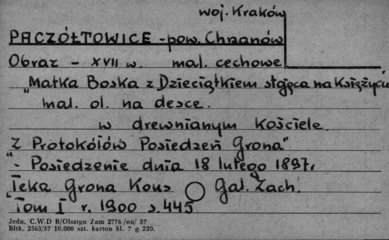 woj. Kraków
PACZÓŁTOWICE - pow. Chrzanów
Obraz - XVII w. mal. cechowe
"Matka Boska z Dzieciątkiem stojąca na Księżycu
mal. ol. na desce.
w drewnianym Kościele.
"Z Protokółów Posiedzeń Grona"
- Posiedzenie dnia 18 lutego 1897r
"Teka Grona Kons Gal. Zach.
Tom I r. 1900 s. 445
Jedn. C.W.D B/Olsztyn Zam 2776/on/ 57
Bilt. 2563/57 10.000 szt. karton kl. 7 g 220.